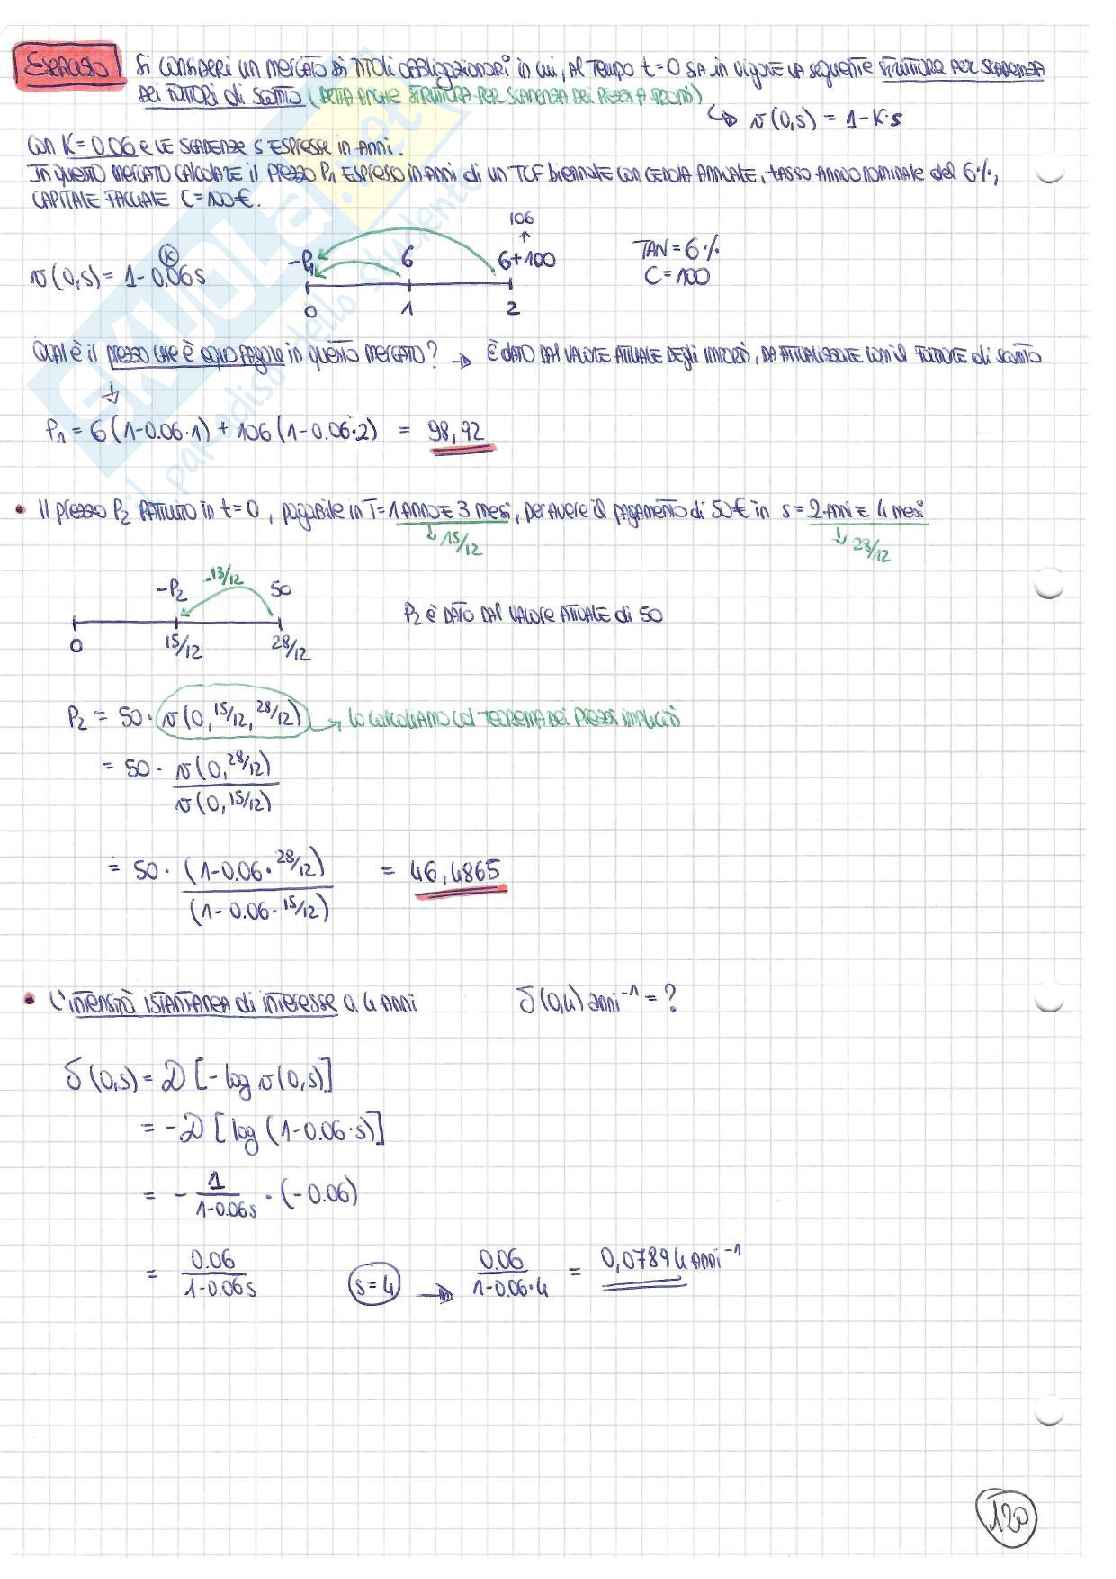 ESERCIZIO Si consideri un mercato di titoli obbligazionari in cui, al tempo t=0 sia in vigore la seguente struttura per scadenza
dei fattori di sconto (detta anche struttura per scadenza dei prezzi a pronti)
↳ v(0,s) = 1-K·s
con K=0.06 e le scadenze s espresse in anni.
In questo mercato calcolate il prezzo P1 espresso in anni di un TCF biennale con cedola annuale, tasso annuo nominale del 6%,
capitale facciale C=100€.
v(0,s) = 1-0.06s
K
-P1 6 6+100
106
0 1 2
TAN=6%
C=100
Qual è il prezzo che è equo pagare in questo mercato? → è dato dal valore attuale degli importi, da attualizzare con il fattore di sconto
P1 = 6(1-0.06·1) + 106(1-0.06·2) = 98,92
• Il prezzo P2 pattuito in t=0, pagabile in T=1 anno e 3 mesi, per avere il pagamento di 50€ in s=2 anni e 4 mesi
↓ 15/12
↓ 23/12
-P2 -13/12 50
0 15/12 28/12
P2 è dato dal valore attuale di 50
P2 = 50 · v(0, 15/12, 28/12) → lo calcoliamo col teorema dei prezzi impliciti
= 50 · v(0, 28/12)
v(0, 15/12)
= 50 · (1-0.06· 28/12) = 46,4865
(1-0.06· 15/12)
• L'intensità istantanea di interesse a 4 anni δ(0,4) anni⁻¹ = ?
δ(0,s) = D [-log v(0,s)]
= -D [log (1-0.06·s)]
= - 1 · (-0.06)
1-0.06s
= 0.06 s=4 → 0.06 = 0,07894 anni⁻¹
1-0.06s 1-0.06·4
120
SKUOLA.net
il paradiso dello studente